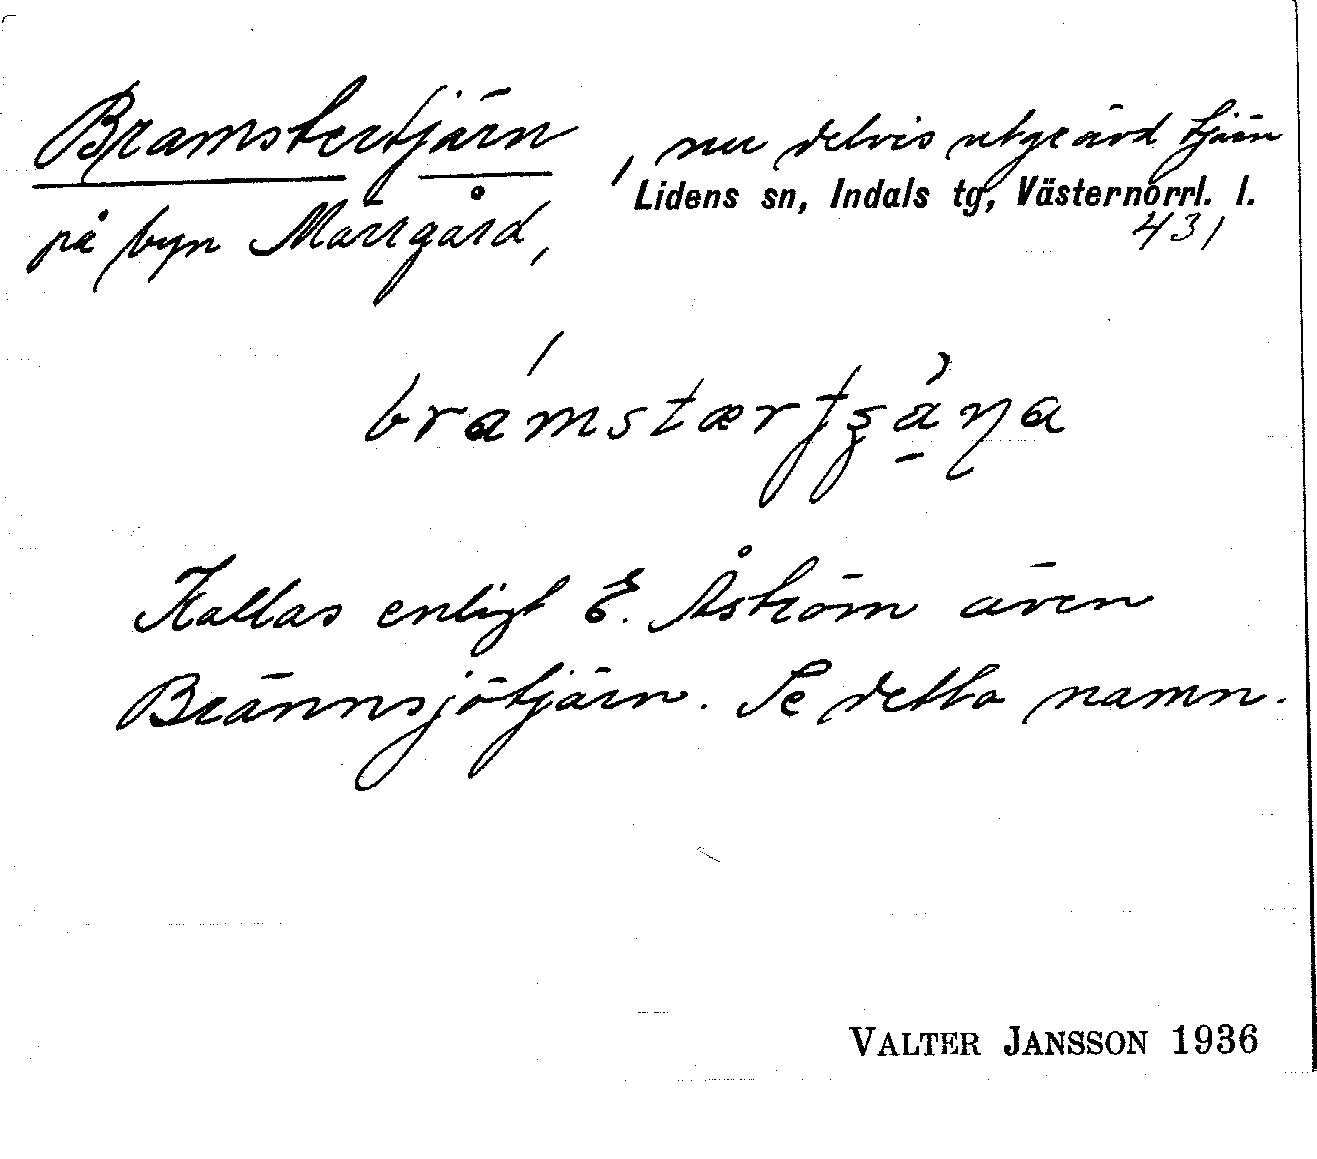 Bramstertjärn, nu delvis utgrävd tjärn
Lidens sn, Indals tg, Västernorrl. l.
på byn Märrgård, 431
Kallas enligt E. Åström även
Brännsjötjärn. Se detta namn.
VALTER JANSSON 1936